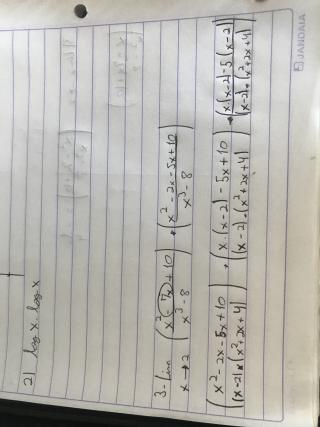 2) log x . log x
3- Lim (x² - 7x + 10 / x³ - 8) . (x² - 2x - 5x + 10 / x³ - 8)
x → 2
(x² - 2x - 5x + 10 / (x-2) . (x² + 2x + 4)) . (x . (x-2) - 5x + 10 / (x-2) . (x² + 2x + 4)) . (x . (x-2) - 5 (x-2) / (x-2) . (x² + 2x + 4))
JANDAIA